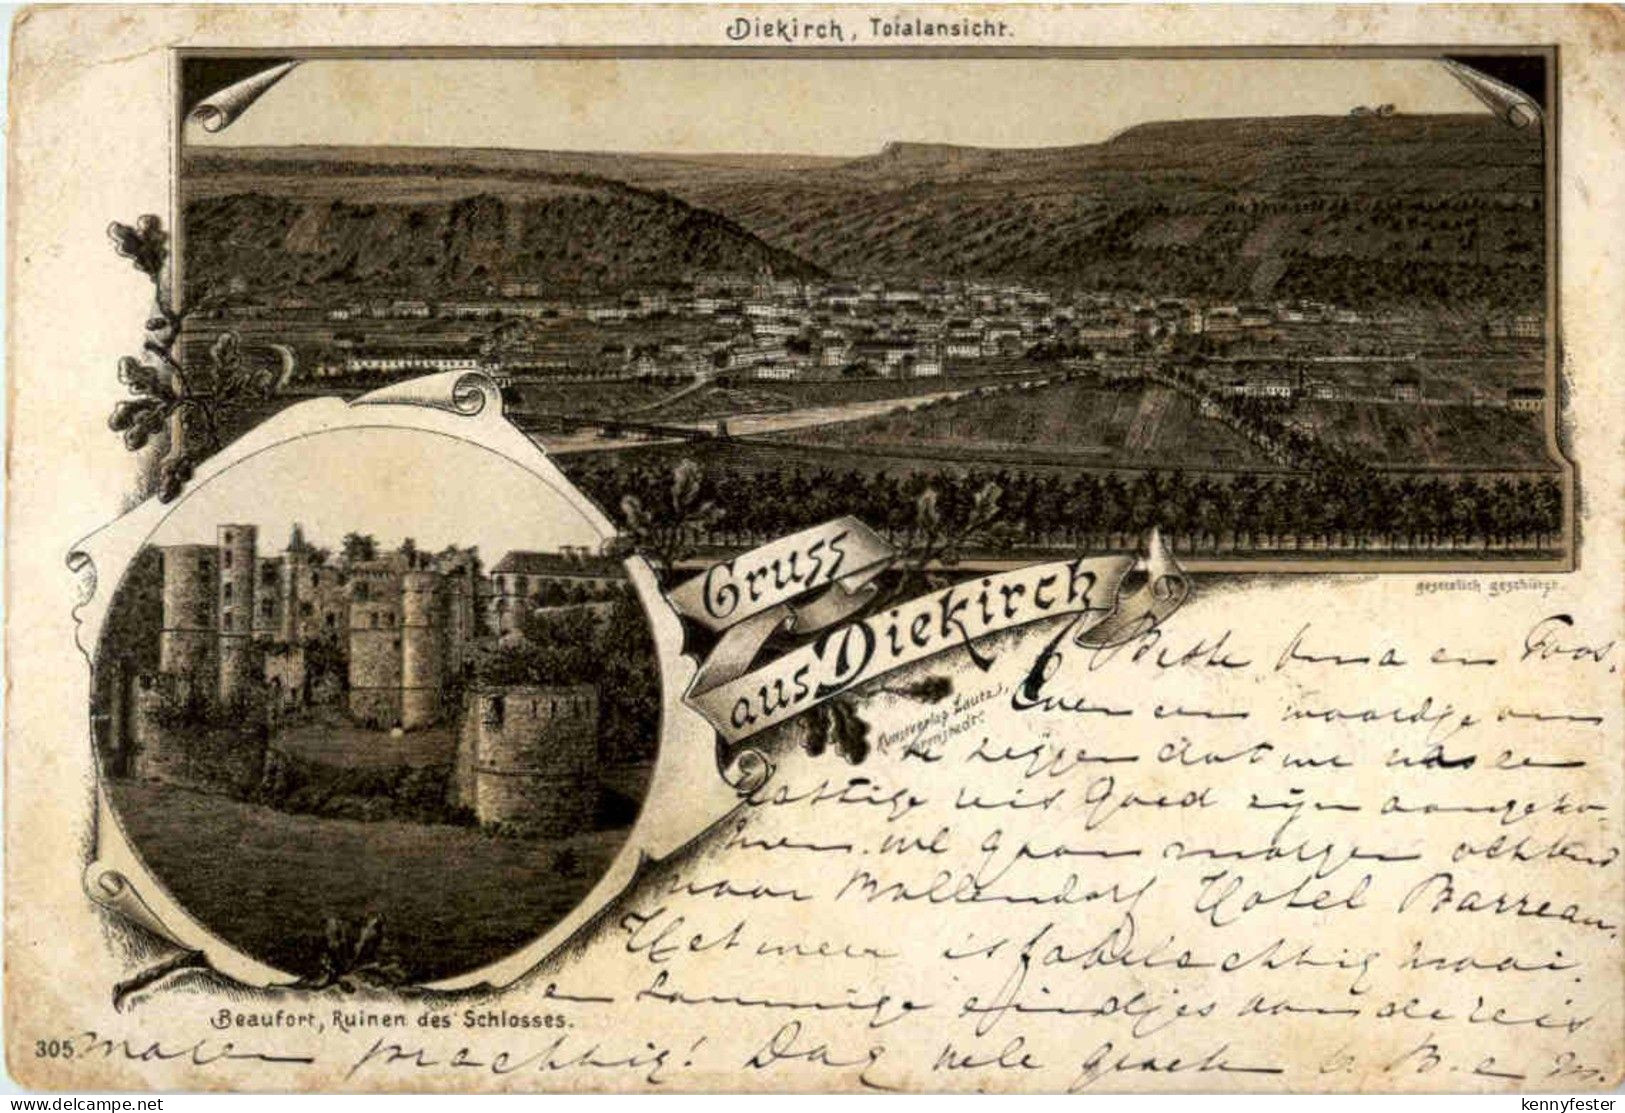 Diekirch, Totalansicht.
Gruss
aus Diekirch
gesetzlich geschützt.
Kunstverlag Lautz,
Darmstadt.
Beste Oma en Toos.
Even een woordje om
te zeggen dat we na een
lastige reis goed zijn aangeko-
men. We gaan morgen ochtend
naar Bollendorf Hotel Barreau.
Het weer is fabelachtig mooi,
en sommige eindjes van de reis
Beaufort, Ruinen des Schlosses.
305
waren prachtig! Dag vele groeten v. B. e M.
kennyfester